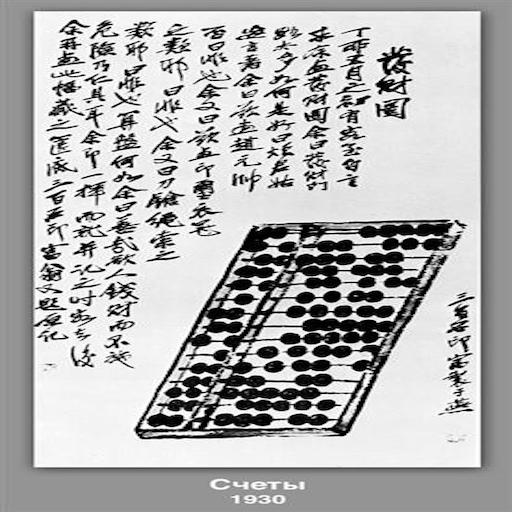 發財圖
丁卯五月之初有客至自言
求余畫發財圖余曰發財門
路太多如何是好曰煩君姑
妄言著余曰欲畫趙元帥
否曰非也余又曰欲畫印璽衣冠
之類耶曰非也余又曰刀槍繩索之
類耶曰非也算盤何如余曰善哉欲人錢財而不施
危險乃仁具耳余即一揮而就并記之時客去後
余再畫此幅藏之篋底三百石印富翁又題原記
三百石印富翁製于燕
Счеты
1930